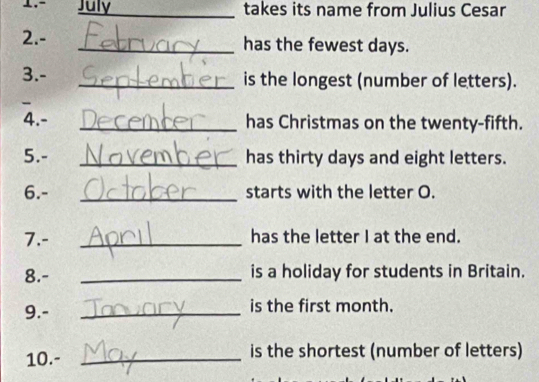 1.- July takes its name from Julius Cesar
2.- February has the fewest days.
3.- September is the longest (number of letters).
4.- December has Christmas on the twenty-fifth.
5.- November has thirty days and eight letters.
6.- October starts with the letter O.
7.- April has the letter I at the end.
8.- is a holiday for students in Britain.
9.- January is the first month.
10.- May is the shortest (number of letters)